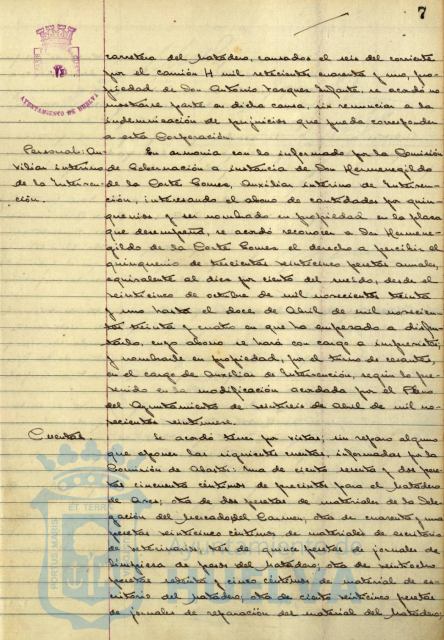 7
AYUNTAMIENTO DE HUELVA
carretera del Matadero, causados el seis del corriente
por el camión H mil setecientos cuarenta y uno, pro-
piedad de Don Antonio Vazquez Infante, se acordó no
mostrarse parte en dicha causa, sin renunciar a la
indemnización de perjuicios que pueda corresponder
a esta Corporación.
Personal: Au-
xiliar interino
de la Interven-
ción.
En armonía con lo informado por la Comisión
de Gobernación a instancia de Don Hermenegildo
de la Corte Gomez, Auxiliar interino de Interven-
ción, interesando el abono de cantidades por quin-
quenios y ser nombrado en propiedad en la plaza
que desempeña, se acordó reconocer a Don Hermene-
gildo de la Corte Gomez el derecho a percibir el
quinquenio de trescientas veinticinco pesetas anuales,
equivalente al diez por ciento del sueldo, desde el
veinticinco de octubre de mil novecientos treinta
y uno hasta el doce de Abril de mil novecien-
tos treinta y cuatro en que ha empezado a disfru-
tarlo, cuyo abono se hará con cargo a imprevistos,
y nombrarle en propiedad, por el turno de cesantes,
en el cargo de Auxiliar de Intervención, según lo pre-
venido en la modificación acordada por el Pleno
del Ayuntamiento de veintiseis de Abril de mil no-
vecientos veintinueve.
Cuentas.
Se acordó tener por vistas, sin reparo alguno
que oponer las siguientes cuentas, informadas por la
Comisión de Abastos: Una de ciento sesenta y dos pese-
tas cincuenta céntimos de precintos para el Matadero
de Aves; otra de dos pesetas de materiales de la Dele-
gación del Mercado del Carmen; otra de cuarenta y una
pesetas veinticinco céntimos de materiales de escritorio
de veterinarios; seis de quince pesetas de jornales de
limpieza de pozos del Matadero; otra de veintiocho
pesetas setenta y cinco céntimos de material de es-
critorio del Matadero; otra de ciento veinticinco pesetas
de jornales de reparación del material del Matadero;